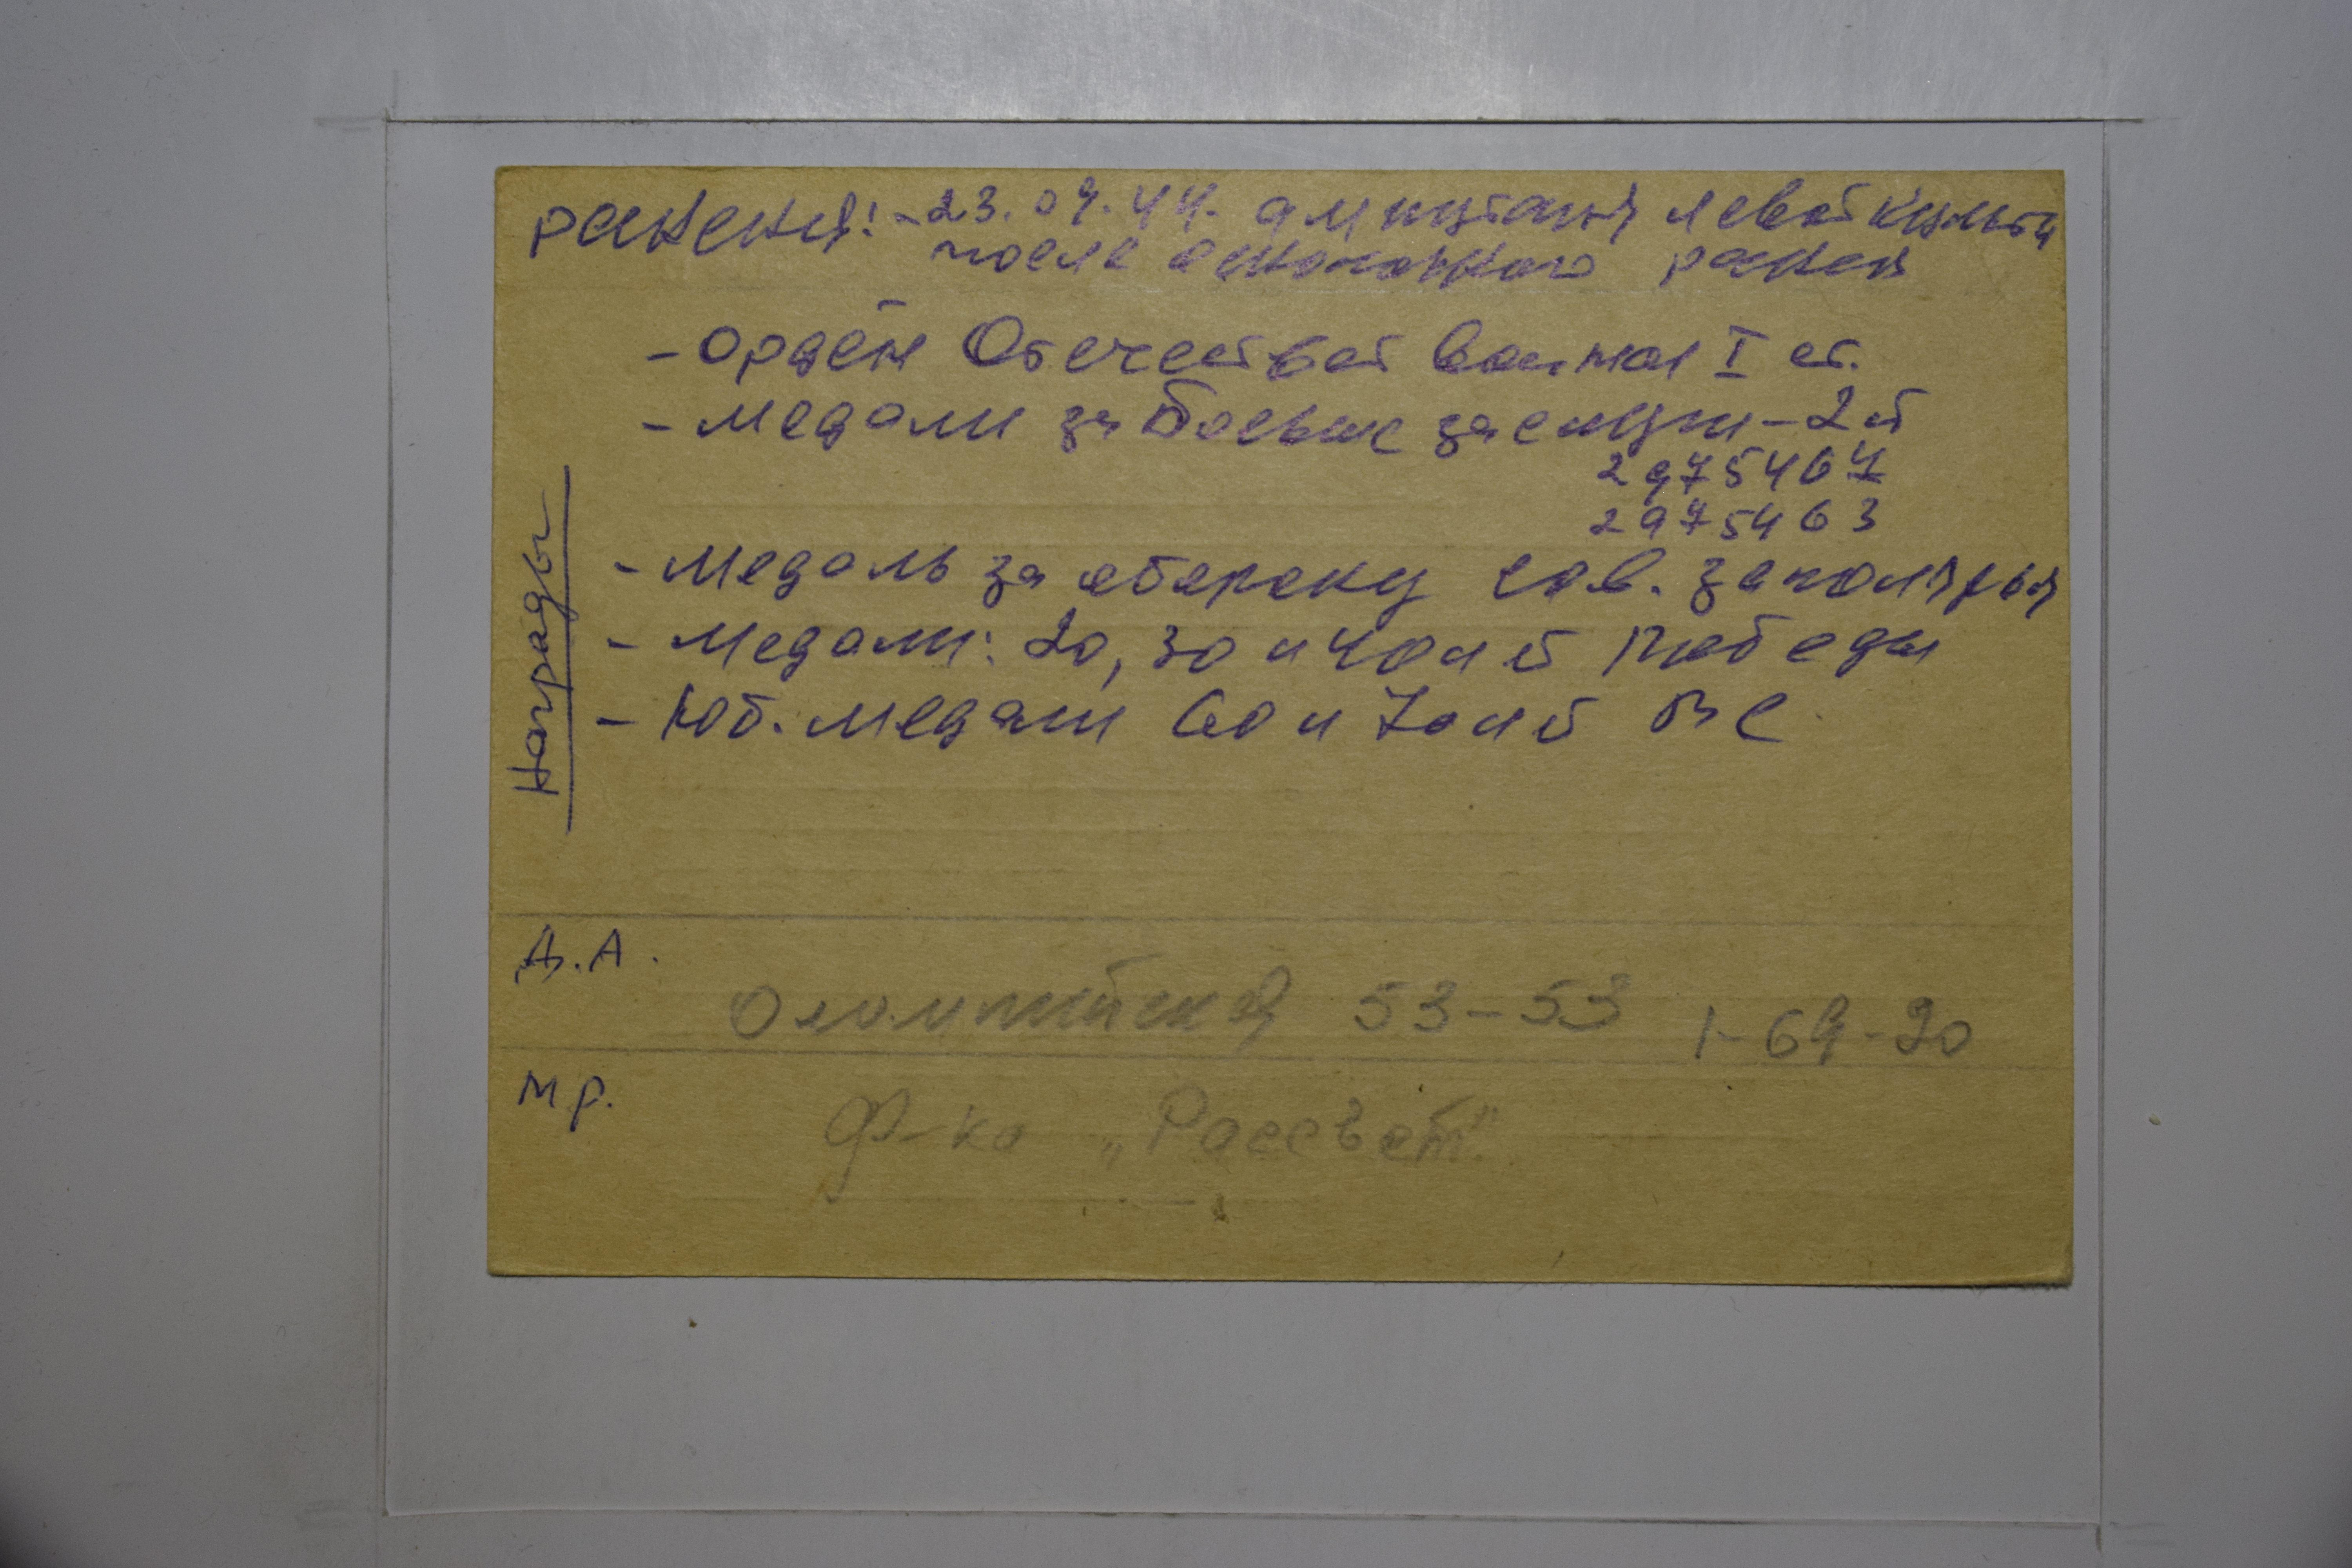 ранения: - 23.09.44. ампутация левой культи
после осколочного ранен
- орден Отечествет войны I ст.
- медали за боевые заслуги - 2 й
2975467
2975463
- медаль за оборону сов. заполярья
- медали: 20, 30 и 40 лет Победы
- юб. медали 60 и 70 лет ВС
Награды
Д.А.
Олимпийская 53-53 1-69-20
М р.
ф-ка „Рассвет"